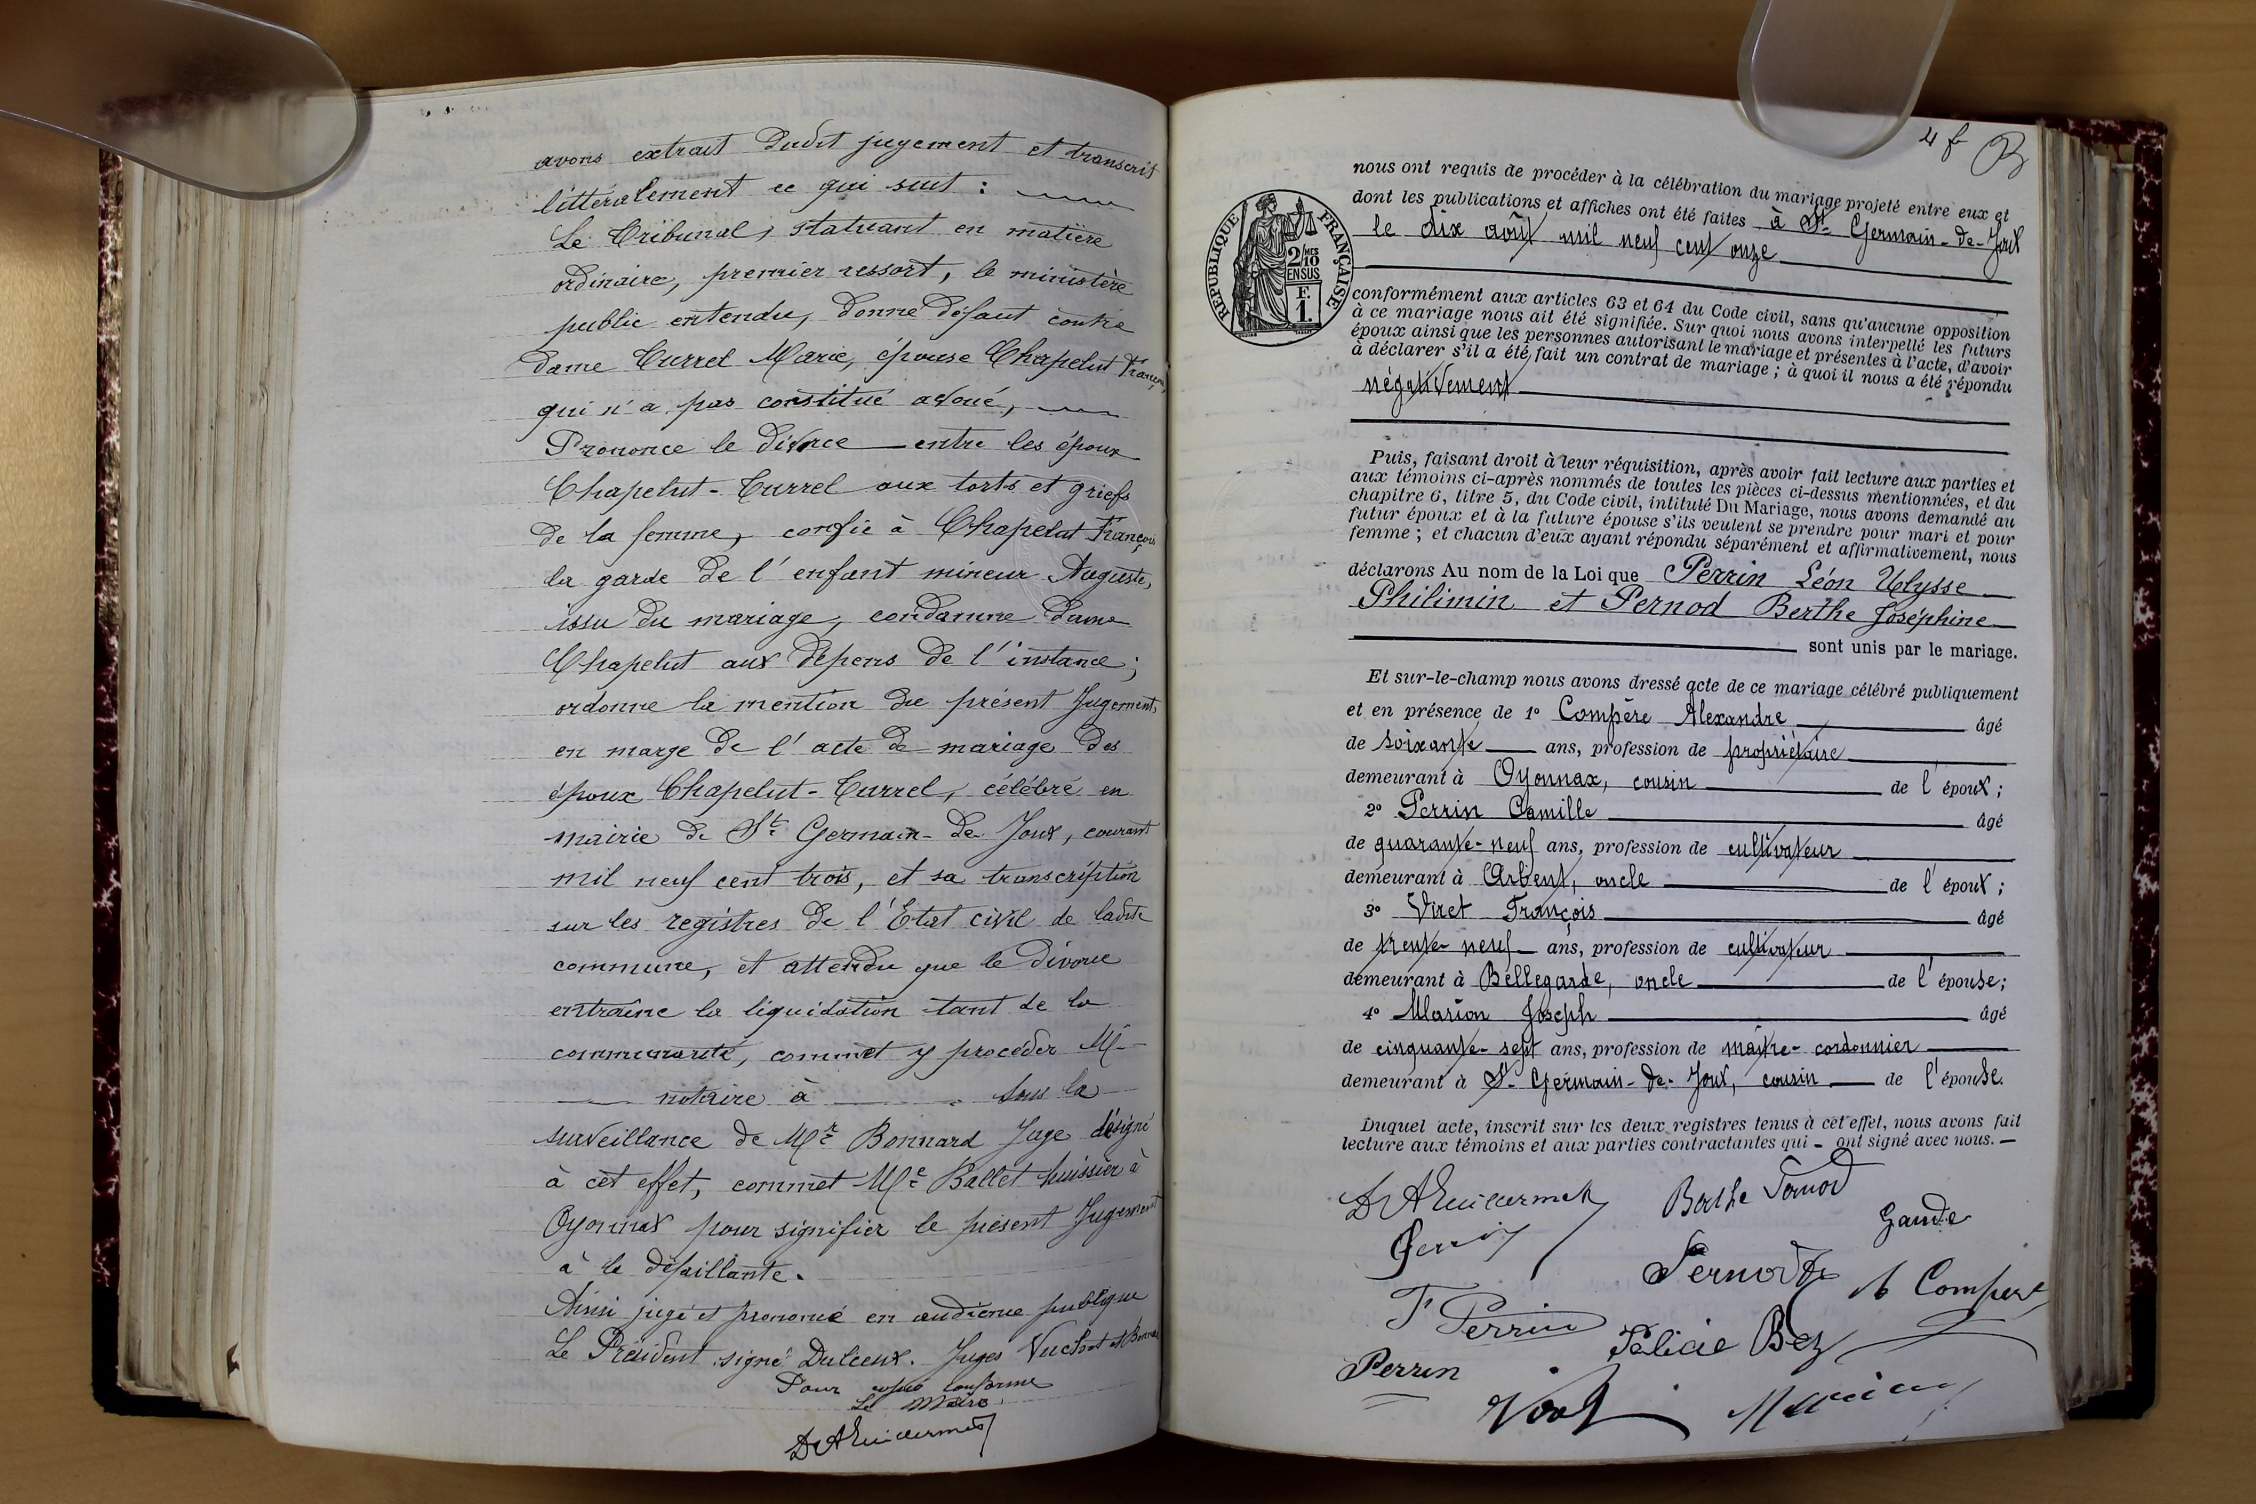 avons extrait dudit jugement et transcrit
littéralement ce qui suit :
Le Tribunal, statuant en matière
ordinaire, premier ressort, le ministère
public entendu, donne défaut contre
dame Turrel Marie, épouse Chapelut François,
qui n'a pas constitué avoué,
Prononce le divorce entre les époux
Chapelut-Turrel aux torts et griefs
de la femme, confie à Chapelut François
la garde de l'enfant mineur Auguste,
issu du mariage, condamne dame
Chapelut aux dépens de l'instance ;
ordonne la mention du présent Jugement,
en marge de l'acte de mariage des
époux Chapelut-Turrel, célébré en
mairie de St Germain-de-Joux, courant
mil neuf cent trois, et sa transcription
sur les registres de l'Etat civil de ladite
commune, et attendu que le divorce
entraîne la liquidation tant de la
communauté, commet y procéder Me
notaire à sous la
surveillance de Mr Bonnard Juge désigné
à cet effet, commet Me Ballet huissier à
Oyonnax pour signifier le présent Jugement
à la défaillante.
Ainsi jugé et prononcé en audience publique
Le Président signé Dulceux. Juges
Pour copie conforme
Le Maire
4 f
RÉPUBLIQUE FRANÇAISE
2/10 MES
EN SUS
F.
1.
nous ont requis de procéder à la célébration du mariage projeté entre eux et
dont les publications et affiches ont été faites à St Germain-de-Joux
le dix août mil neuf cent onze
conformément aux articles 63 et 64 du Code civil, sans qu'aucune opposition
à ce mariage nous ait été signifiée. Sur quoi nous avons interpellé les futurs
époux ainsi que les personnes autorisant le mariage et présentes à l'acte, d'avoir
à déclarer s'il a été fait un contrat de mariage ; à quoi il nous a été répondu
négativement
Puis, faisant droit à leur réquisition, après avoir fait lecture aux parties et
aux témoins ci-après nommés de toutes les pièces ci-dessus mentionnées, et du
chapitre 6, titre 5, du Code civil, intitulé Du Mariage, nous avons demandé au
futur époux et à la future épouse s'ils veulent se prendre pour mari et pour
femme ; et chacun d'eux ayant répondu séparément et affirmativement, nous
déclarons Au nom de la Loi que Perrin Léon Ulysse
Philimin et Pernod Berthe Joséphine
sont unis par le mariage.
Et sur-le-champ nous avons dressé acte de ce mariage célébré publiquement
et en présence de 1° Compère Alexandre âgé
de soixante ans, profession de propriétaire
demeurant à Oyonnax, cousin de l'époux ;
2° Perrin Camille âgé
de quarante-neuf ans, profession de cultivateur
demeurant à Arbent, oncle de l'époux ;
3° Viret François âgé
de trente-neuf ans, profession de cultivateur
demeurant à Bellegarde, oncle de l'épouse ;
4° Marion Joseph âgé
de cinquante-sept ans, profession de maître-cordonnier
demeurant à St-Germain-de-Joux, cousin de l'épouse.
Duquel acte, inscrit sur les deux registres tenus à cet effet, nous avons fait
lecture aux témoins et aux parties contractantes qui - ont signé avec nous. —
Berthe Pernod
Gande
Pernod
A Compère
F Perrin
Félicie Bez
Perrin